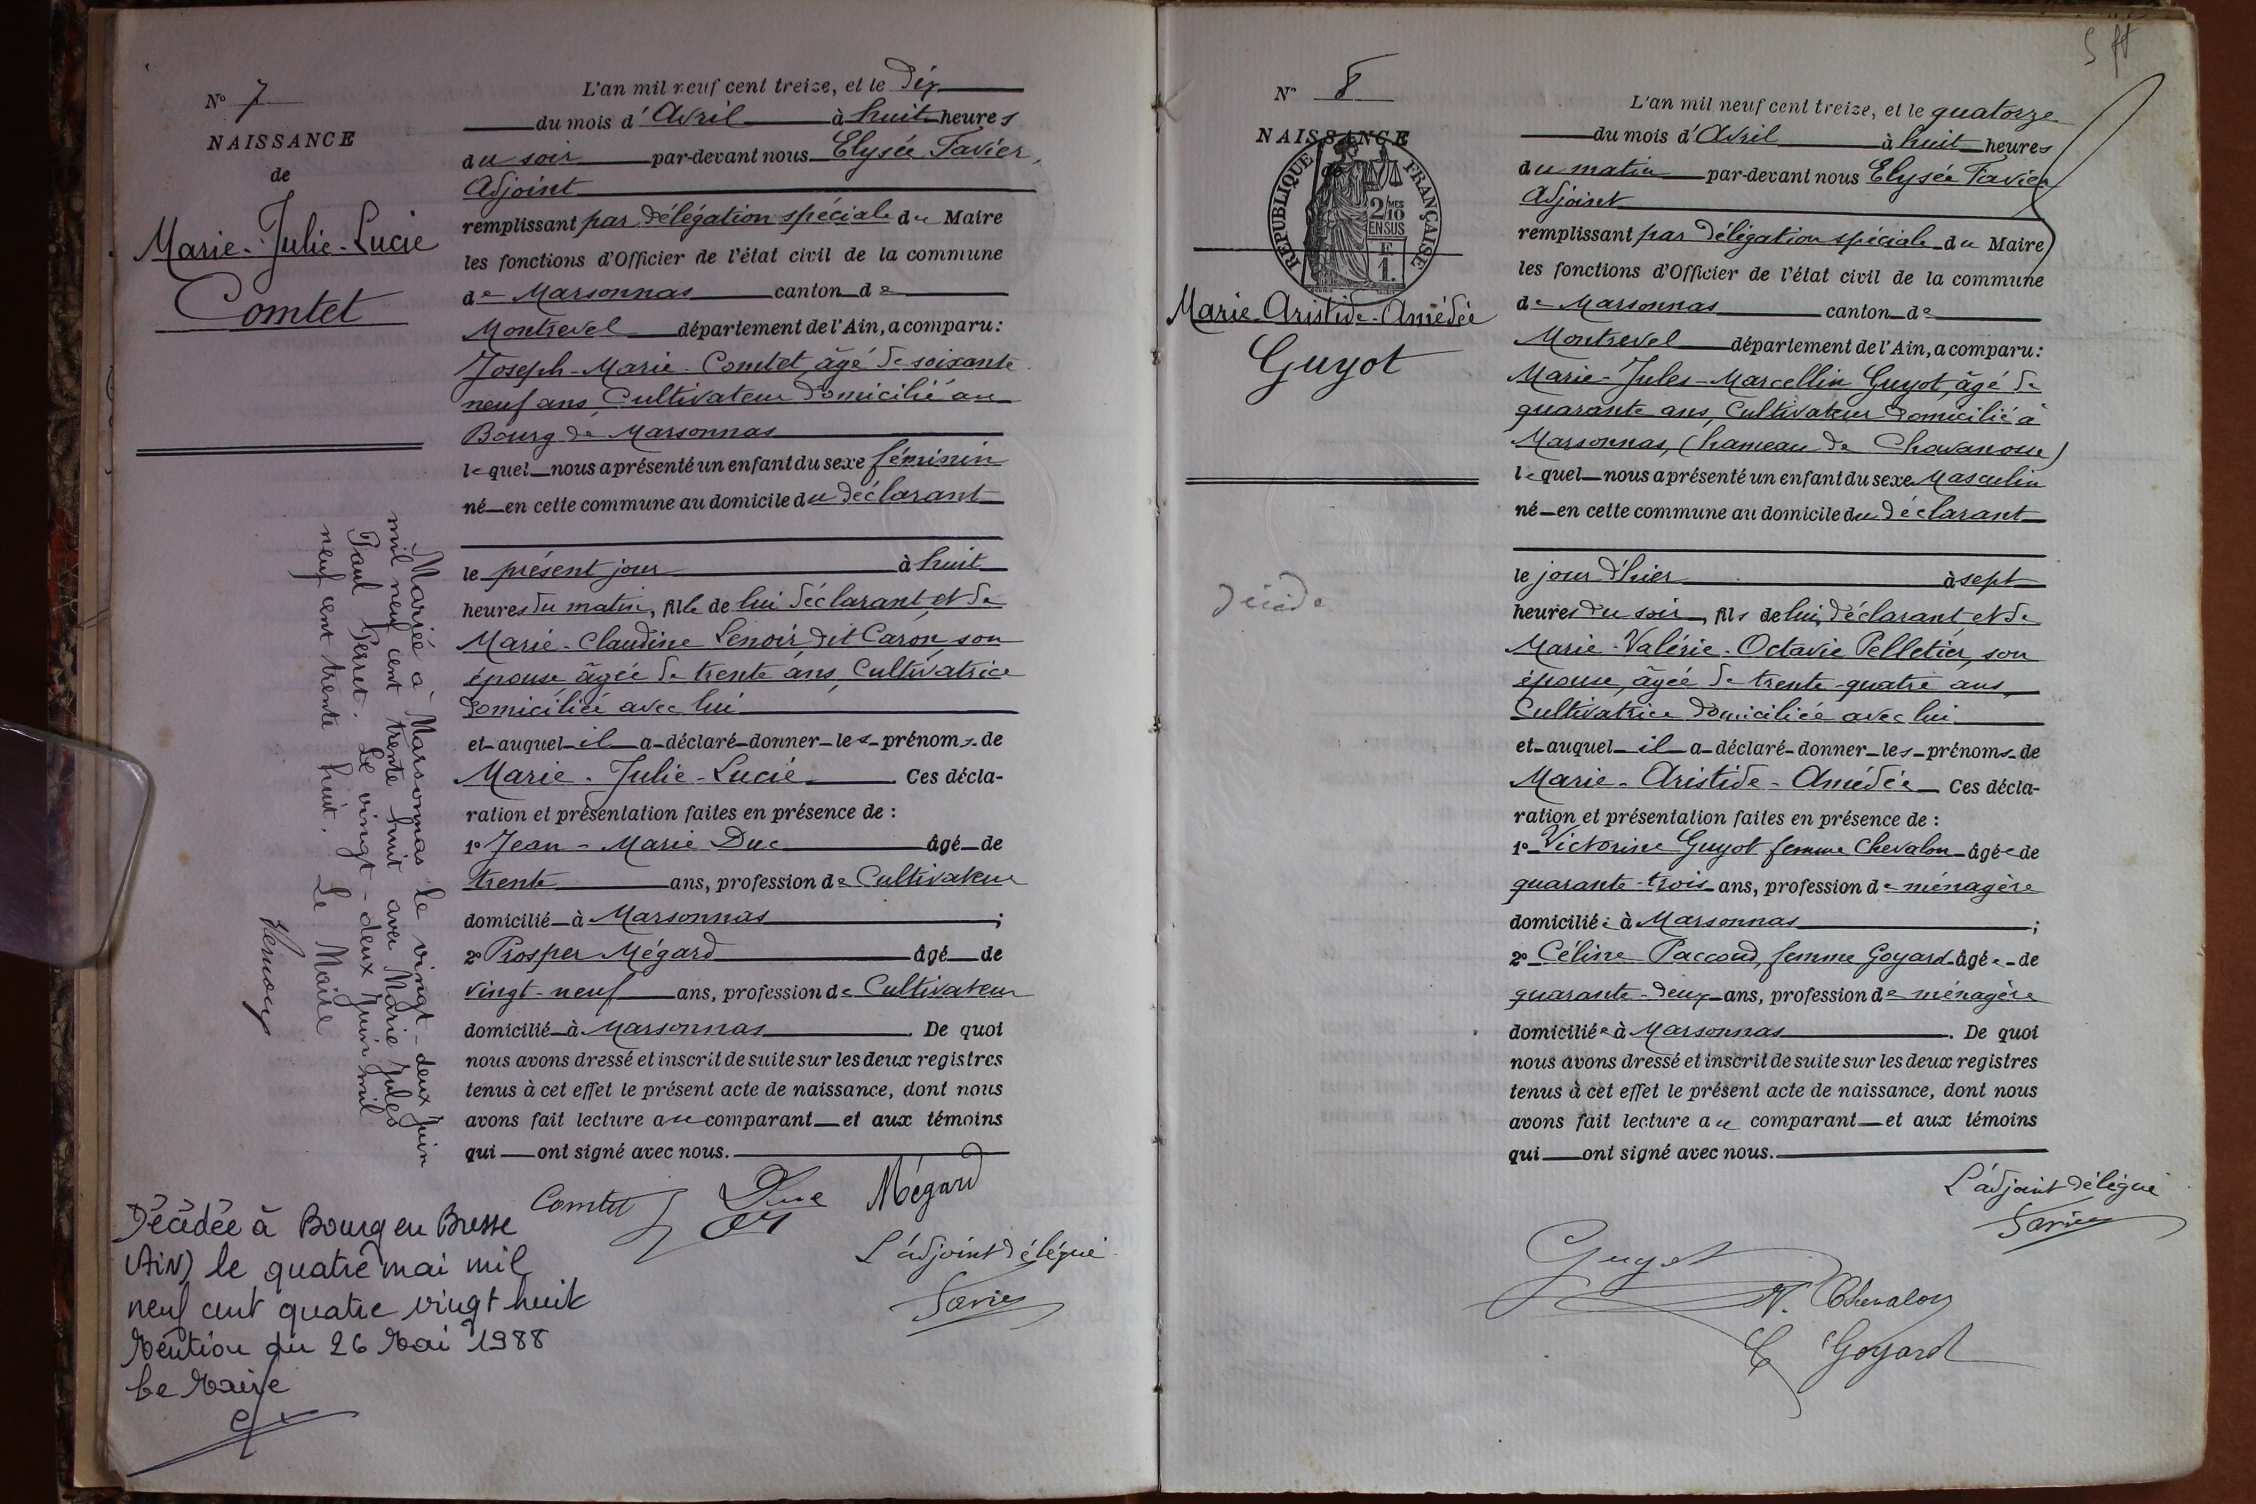 N° 7
NAISSANCE
de
Marie-Julie-Lucie
Comtet
L'an mil neuf cent treize, et le Dix
du mois d'Avril à huit heures
du soir par-devant nous Elysée Favier,
Adjoint
remplissant par délégation spéciale du Maire
les fonctions d'Officier de l'état civil de la commune
de Marsonnas canton de
Montrevel département de l'Ain, a comparu:
Joseph-Marie Comtet, âgé de soixante
neuf ans, Cultivateur domicilié au
Bourg de Marsonnas
lequel nous a présenté un enfant du sexe féminin
né en cette commune au domicile du déclarant
le présent jour à huit
heures du matin, fille de lui déclarant et de
Marie-Claudine Lenoir dit Caron, son
épouse âgée de trente ans, Cultivatrice
domiciliée avec lui
et auquel il a déclaré donner les prénoms de
Marie-Julie-Lucie. Ces décla-
ration et présentation faites en présence de :
1° Jean-Marie Duc âgé de
trente ans, profession de Cultivateur
domicilié à Marsonnas ;
2° Prosper Mégard âgé de
vingt-neuf ans, profession de Cultivateur
domicilié à Marsonnas. De quoi
nous avons dressé et inscrit de suite sur les deux registres
tenus à cet effet le présent acte de naissance, dont nous
avons fait lecture au comparant et aux témoins
qui ont signé avec nous.
Comtet Duc Mégard
L'adjoint délégué
Favier
Mariée à Marsonnas le vingt-deux juin
mil neuf cent trente huit avec Marie Jules
Paul Perret. Le vingt-deux juin mil
neuf cent trente huit. Le Maire
Décédée à Bourg en Bresse
(AiN) le quatre mai mil
neuf cent quatre vingt huit
Mention du 26 Mai 1988
Le Maire
N° 8
NAISSANCE
de
RÉPUBLIQUE FRANÇAISE
2/10MES
EN SUS
E
1.
Marie-Aristide-Amédée
Guyot
Décédé
L'an mil neuf cent treize, et le quatorze
du mois d'Avril à huit heures
du matin par-devant nous Elysée Favier
Adjoint
remplissant par délégation spéciale du Maire
les fonctions d'Officier de l'état civil de la commune
de Marsonnas canton de
Montrevel département de l'Ain, a comparu:
Marie-Jules-Marcellin Guyot, âgé de
quarante ans, Cultivateur domicilié à
Marsonnas, (hameau de
lequel nous a présenté un enfant du sexe Masculin
né en cette commune au domicile du déclarant
le jour d'hier à sept
heures du soir, fils de lui, déclarant et de
Marie-Valérie-Octavie Pelletier, son
épouse, âgée de trente-quatre ans,
Cultivatrice domiciliée avec lui
et auquel il a déclaré donner les prénoms de
Marie-Aristide-Amédée Ces décla-
ration et présentation faites en présence de :
1° Victorine Guyot femme Chevalon âgée de
quarante-trois ans, profession de ménagère
domiciliée à Marsonnas ;
2° Céline Paccoud, femme Goyard âgée de
quarante-deux ans, profession de ménagère
domiciliée à Marsonnas. De quoi
nous avons dressé et inscrit de suite sur les deux registres
tenus à cet effet le présent acte de naissance, dont nous
avons fait lecture au comparant et aux témoins
qui ont signé avec nous.
L'adjoint délégué
Favier
Guyot
V. Chevalon
C Goyard